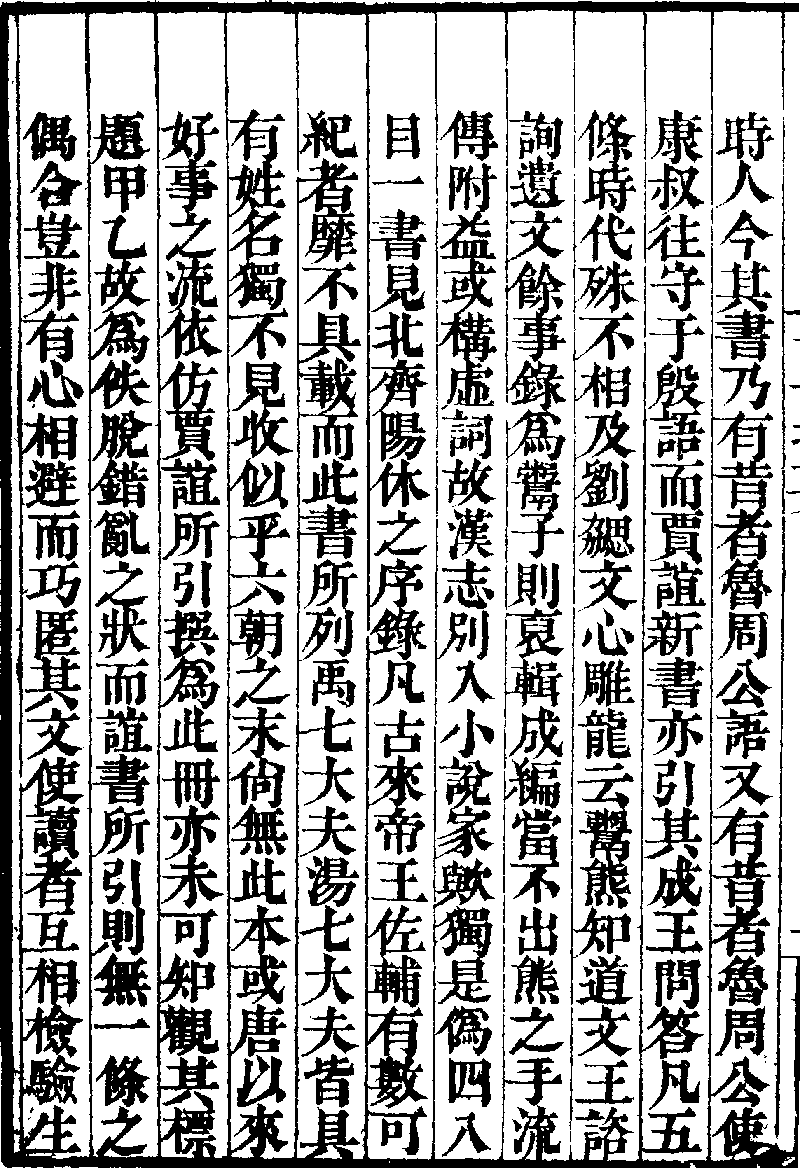 時人今其書乃有昔者魯周公語又有昔者魯周公使
康叔往守于殷語而賈誼新書亦引其成王問答凡五
條時代殊不相及劉勰文心雕龍云鬻熊知道文王諮
詢遺文餘事錄爲鬻子則裒輯成編當不出熊之手流
傳附益或構虛詞故漢志別入小說家歟獨是僞四八
目一書見北齊陽休之序錄凡古來帝王佐輔有數可
紀者靡不具載而此書所列禹七大夫湯七大夫皆具
有姓名獨不見收似乎六朝之末尙無此本或唐以來
好事之流依仿賈誼所引撰爲此冊亦未可知觀其標
題甲乙故爲佚脫錯亂之狀而誼書所引則無一條之
偶合豈非有心相避而巧匿其文使讀者互相檢驗生